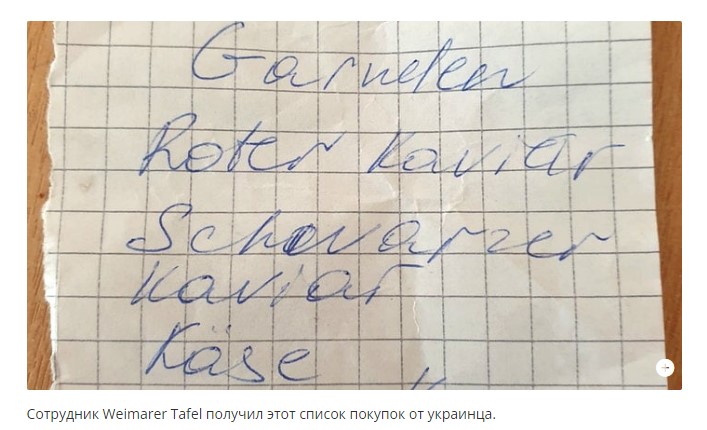 Garnelen
Roter Kaviar
Schwarzer
Kaviar
Käse
Сотрудник Weimarer Tafel получил этот список покупок от украинца.